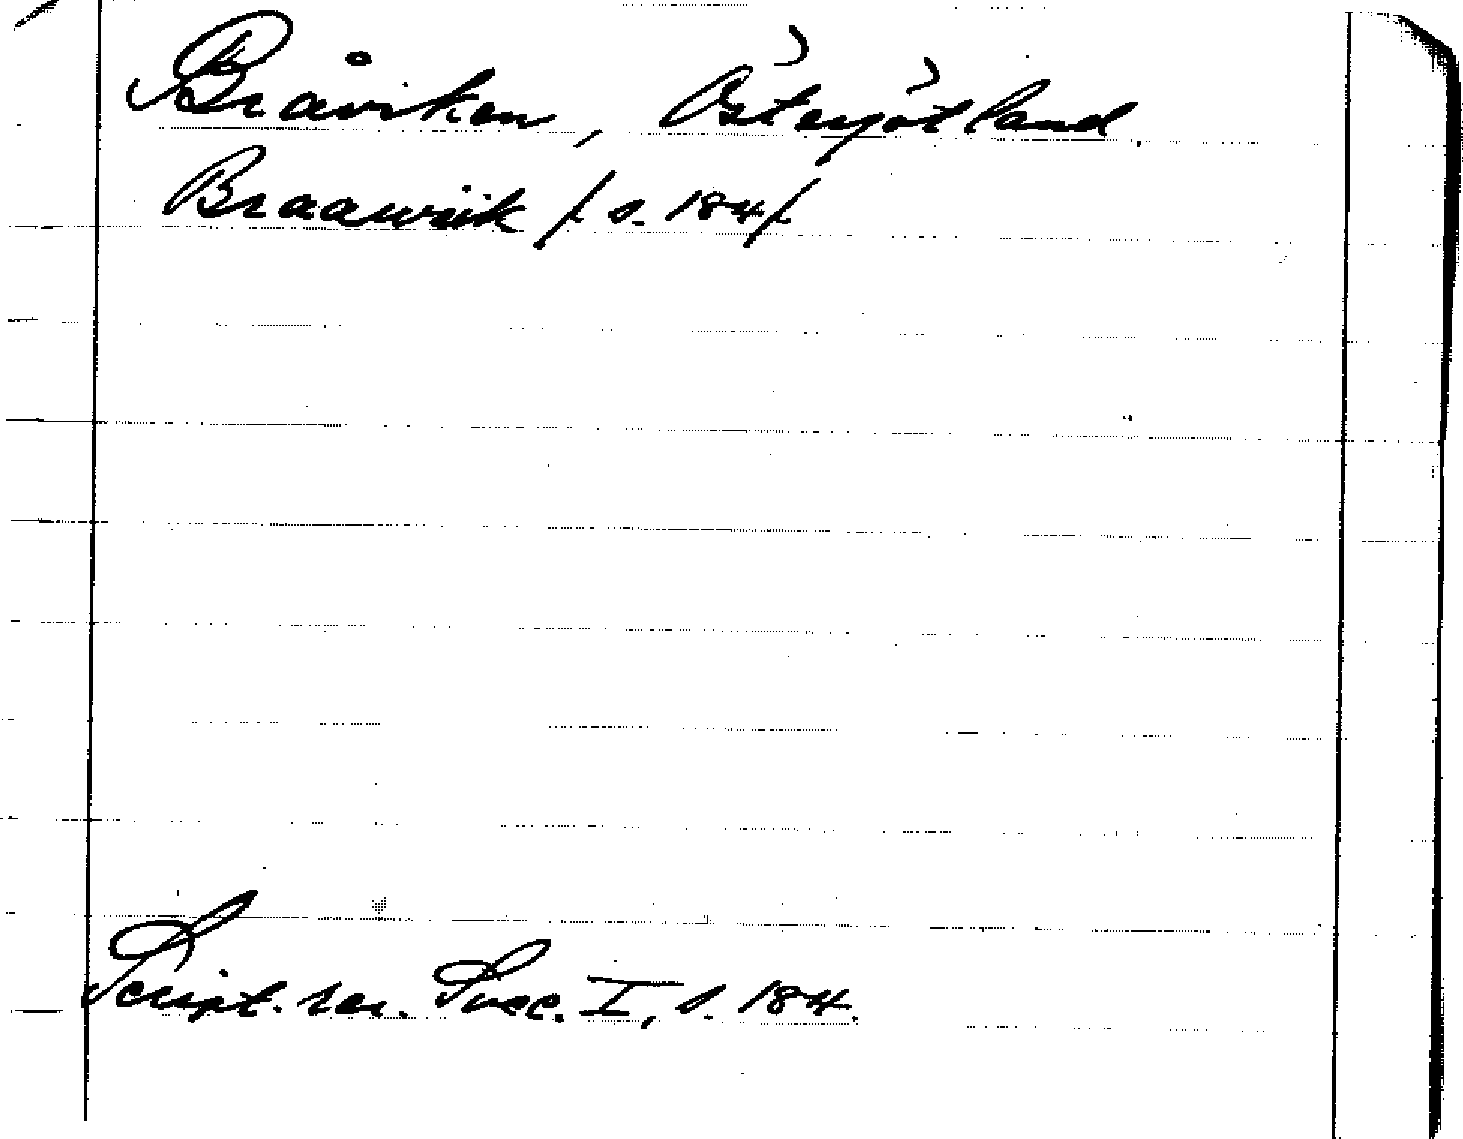 Bråviken, Östergötland
Braawiik / s. 184/
Script. rer. Svec. I, s. 184.